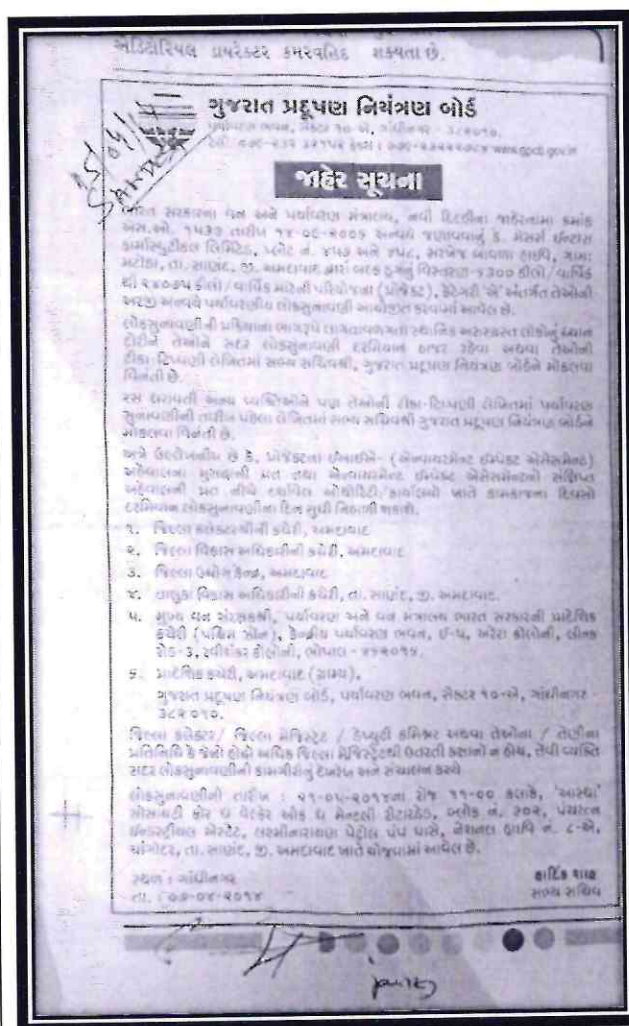 એડિટોરિયલ ડાયરેક્ટર કમરવહિદ શક્યતા છે.
ગુજરાત પ્રદૂષણ નિયંત્રણ બોર્ડ
પર્યાવરણ ભવન, સેક્ટર ૧૦-એ, ગાંધીનગર - ૩૮૨૦૧૦,
જાહેર સૂચના
ભારત સરકારના વન અને પર્યાવરણ મંત્રાલય, નવી દિલ્હીના જાહેરનામા ક્રમાંક
એસ.ઓ. ૧૫૩૩ તારીખ ૧૪-૦૯-૨૦૦૬ અન્વયે જણાવવાનું કે, મેસર્સ ઈન્ટાસ
ફાર્માસ્યુટીકલ લિમિટેડ, પ્લોટ નં. ૪૫૭ અને ૪૫૮, સરખેજ બાવળા હાઈવે, ગામ:
મટોડા, તા. સાણંદ, જી. અમદાવાદ દ્વારા બલ્ક ડ્રગનું વિસ્તરણ કિલો/વાર્ષિક
થી કિલો/વાર્ષિક માટેની પરિયોજના (પ્રોજેક્ટ), કેટેગરી 'એ' અંતર્ગત તેઓની
અરજી અન્વયે પર્યાવરણીય લોકસુનાવણી આયોજીત કરવામાં આવેલ છે.
લોકસુનાવણીની પ્રક્રિયાના ભાગરૂપે લાગતાવળગતા સ્થાનિક અસરગ્રસ્ત લોકોનું ધ્યાન
દોરીને તેઓને સદર લોકસુનાવણી દરમિયાન હાજર રહેવા અથવા તેઓની
ટીકા-ટિપ્પણી લેખિતમાં સભ્ય સચિવશ્રી, ગુજરાત પ્રદૂષણ નિયંત્રણ બોર્ડને મોકલવા
વિનંતી છે.
રસ ધરાવતી અન્ય વ્યક્તિઓને પણ તેઓની ટીકા-ટિપ્પણી લેખિતમાં પર્યાવરણ
સુનાવણીની તારીખ પહેલા લેખિતમાં સભ્ય સચિવશ્રી ગુજરાત પ્રદૂષણ નિયંત્રણ બોર્ડને
મોકલવા વિનંતી છે.
અત્રે ઉલ્લેખનીય છે કે, પ્રોજેક્ટના ઈઆઈએ- (એન્વાયરમેન્ટ ઈમ્પેક્ટ એસેસમેન્ટ)
અહેવાલના મુસદ્દાની પ્રત તથા એન્વાયરમેન્ટ ઈમ્પેક્ટ એસેસમેન્ટનો સંક્ષિપ્ત
અહેવાલની પ્રત નીચે દર્શાવેલ ઓથોરિટી/કાર્યાલયો ખાતે કામકાજના દિવસો
દરમિયાન લોકસુનાવણીના દિન સુધી નિહાળી શકાશે.
૧. જિલ્લા કલેક્ટરશ્રીની કચેરી, અમદાવાદ
૨. જિલ્લા વિકાસ અધિકારીની કચેરી, અમદાવાદ
૩. જિલ્લા ઉદ્યોગ કેન્દ્ર, અમદાવાદ
૪. તાલુકા વિકાસ અધિકારીની કચેરી, તા. સાણંદ, જી. અમદાવાદ.
૫. મુખ્ય વન સંરક્ષકશ્રી, પર્યાવરણ અને વન મંત્રાલય ભારત સરકારની પ્રાદેશિક
કચેરી (પશ્ચિમ ઝોન), કેન્દ્રીય પર્યાવરણ ભવન, ઈ-૫, અરેરા કોલોની, લીન્ક
રોડ-૩, રવીશંકર કોલોની, ભોપાલ -
૬. પ્રાદેશિક કચેરી, અમદાવાદ (ગ્રામ્ય),
ગુજરાત પ્રદૂષણ નિયંત્રણ બોર્ડ, પર્યાવરણ ભવન, સેક્ટર ૧૦-એ, ગાંધીનગર
૩૮૨૦૧૦.
જિલ્લા કલેક્ટર/ જિલ્લા મેજિસ્ટ્રેટ / ડેપ્યુટી કમિશ્નર અથવા તેઓના / તેણીના
પ્રતિનિધિ કે જેનો હોદ્દો અધિક જિલ્લા મેજિસ્ટ્રેટથી ઉતરતી કક્ષાનો ન હોય, તેવી વ્યક્તિ
સદર લોકસુનાવણીની કામગીરીનું દેખરેખ અને સંચાલન કરશે
લોકસુનાવણીની તારીખ : ૨૧-૦૫-૨૦૧૪ના રોજ ૧૧-૦૦ કલાકે, 'આસ્થા'
સોસાયટી ફોર ધ વેલ્ફેર ઓફ ધ મેન્ટલી રીટાર્ડેડ, બ્લોક નં. ૭૦૨, પંચરત્ન
ઈન્ડસ્ટ્રીયલ એસ્ટેટ, લક્ષ્મીનારાયણ પેટ્રોલ પંપ પાસે, નેશનલ હાઈવે નં. ૮-એ,
ચાંગોદર, તા. સાણંદ, જી. અમદાવાદ ખાતે યોજવામાં આવેલ છે.
સ્થળ : ગાંધીનગર હાર્દિક શાહ
તા. : ૦૭-૦૪-૨૦૧૪ સભ્ય સચિવ